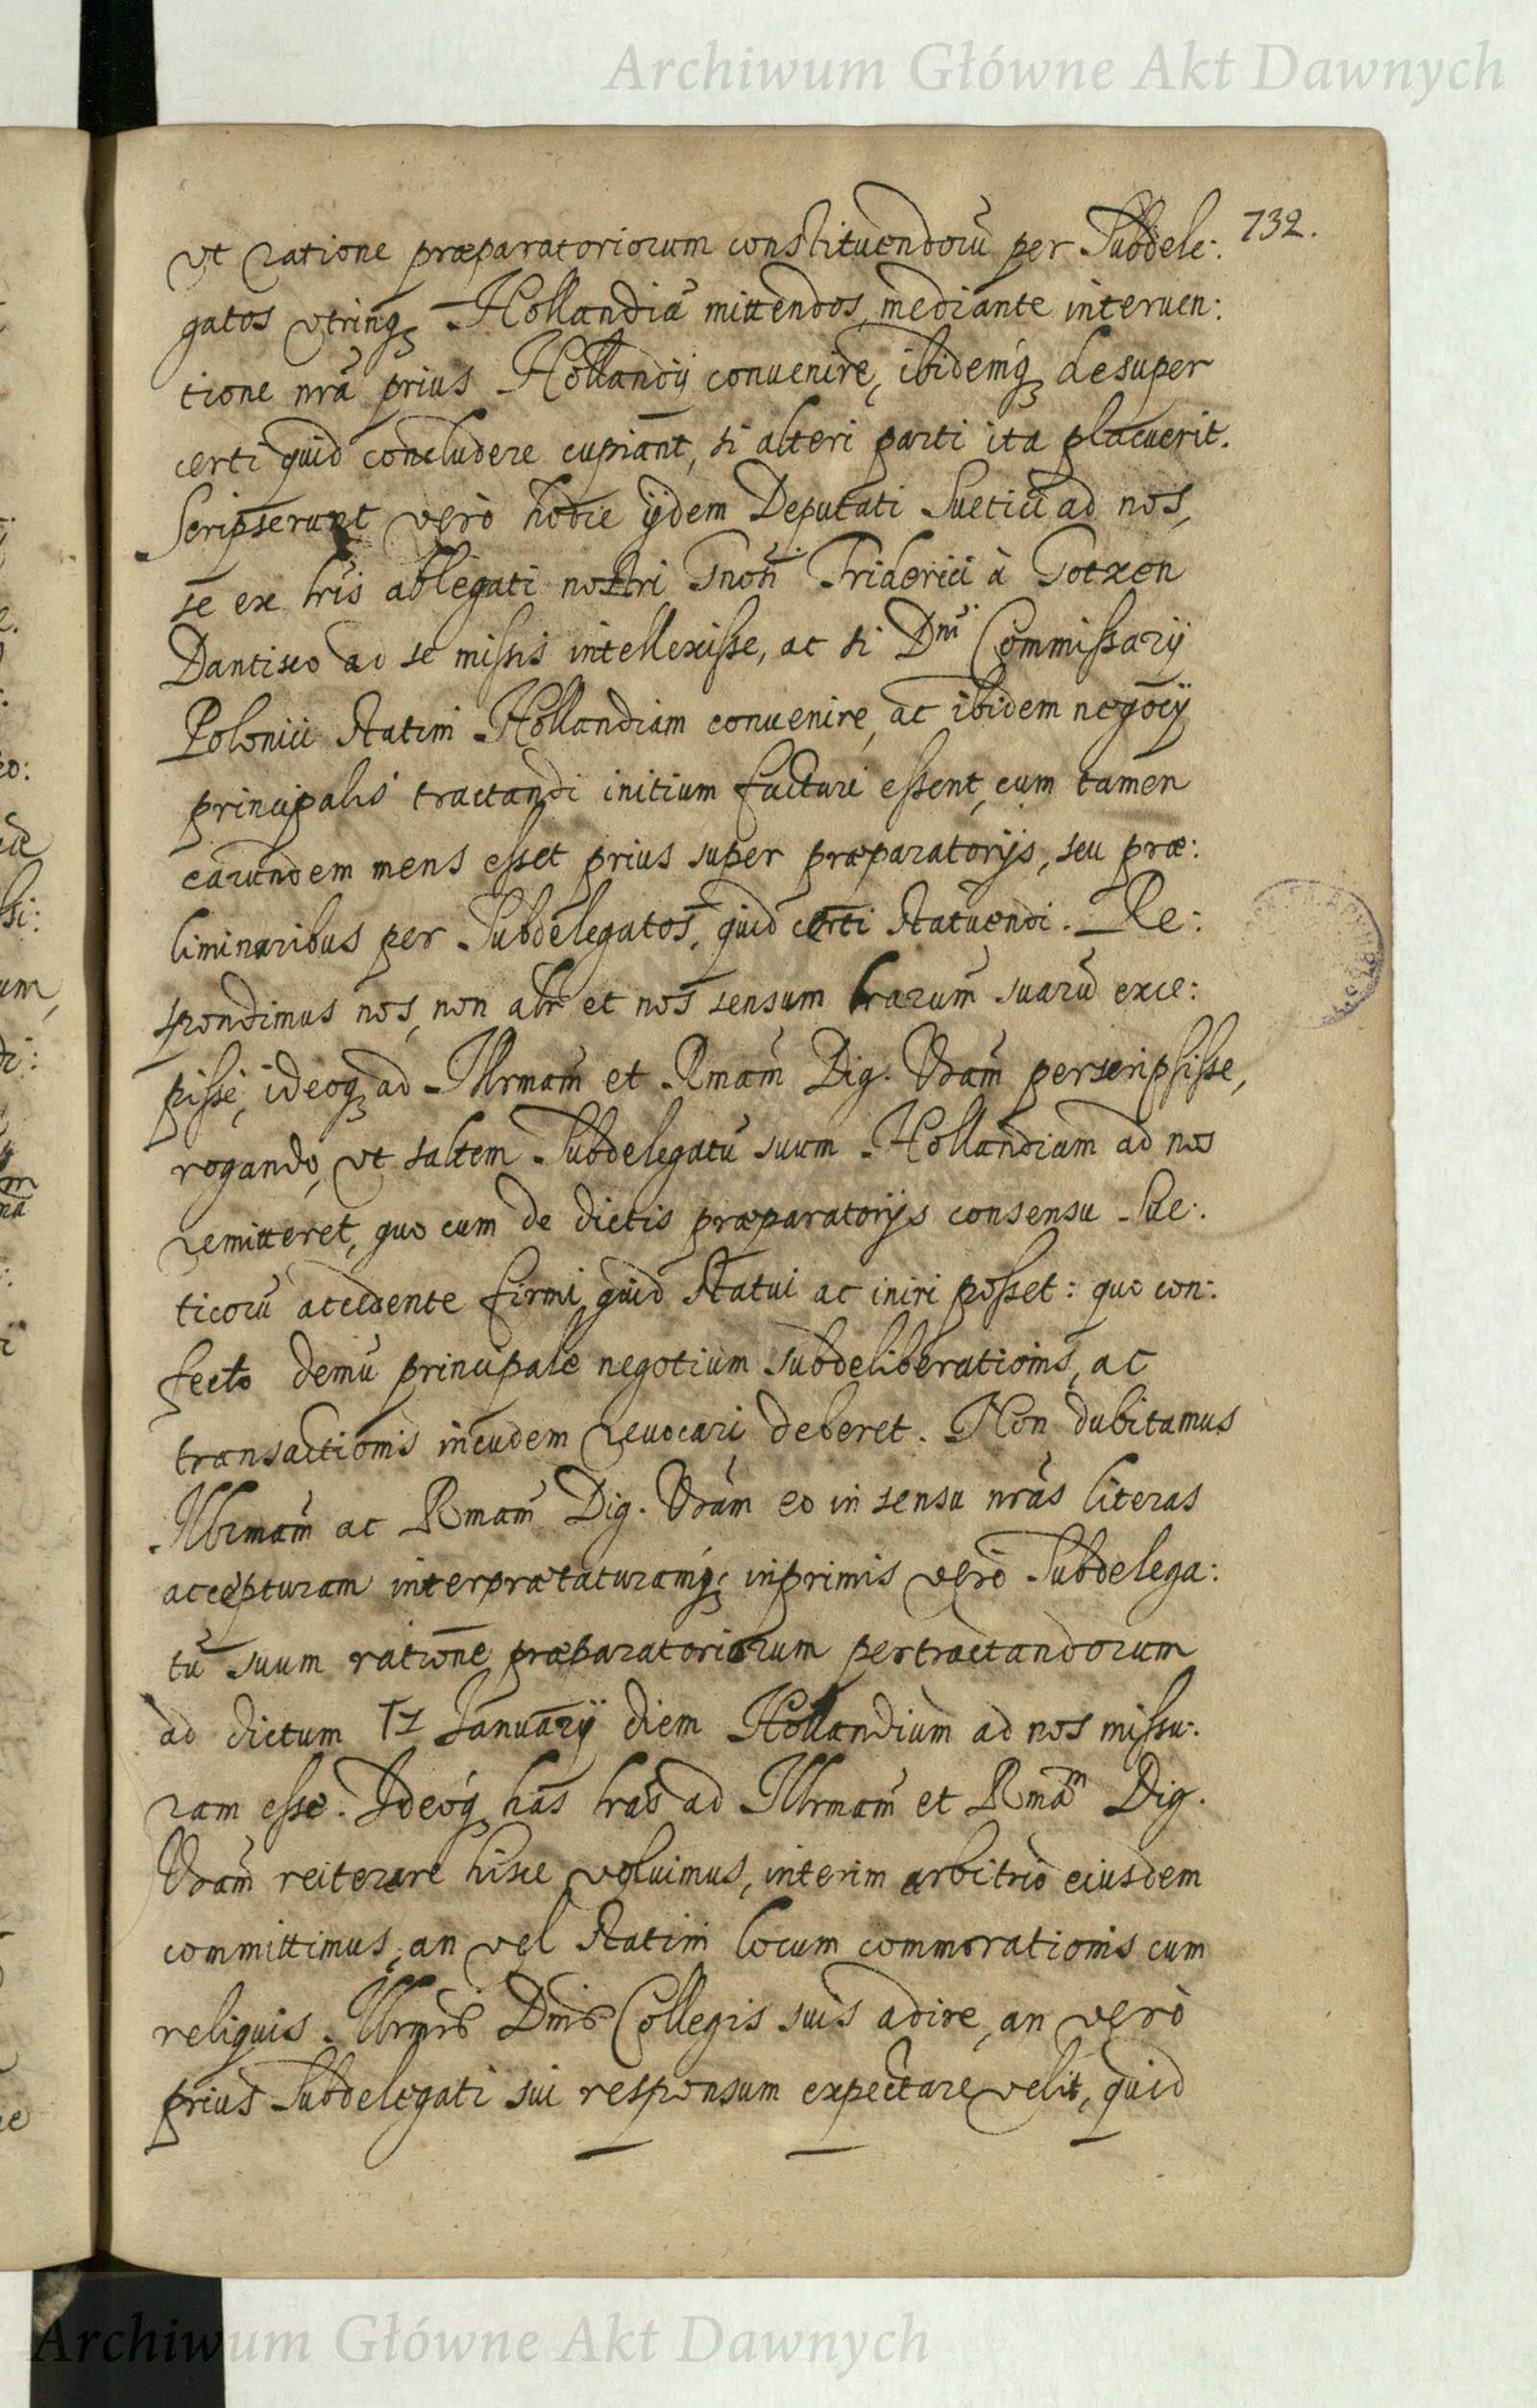 Archiwum Główne Akt Dawnych
732.
vt ratione præparatoriorum constituendorũ per Subdele:
gatos vtrinq₃ Hollandiã mittendos, mediante interuen:
tione nrã prius Hollandij conuenire, ibidemq₃ desuper
certi quid concludere cupiant, si alteri parti ita placuerit.
Scripserunt verò hodie ijdem Deputati Suetici ad nos,
se ex lrĩs ablegati nostri Friderici à Gotxen
Dantisco ad se missis intellexisse, ac si Dnĩ Commissarij
Polonici statim Hollandiam conuenire, ac ibidem negocij
principalis tractandi initium facturi essent, cum tamen
earundem mens esset prius super præparatorijs, seu præ:
liminaribus per Subdelegatos, quid certi statuendi. Re:
spondimus nos, non alr et nos sensum lrarum suarũ exce:
pisse, ideoq₃ ad Illrmam̃ et Rmam̃ Dig. Vram̃ perscripsisse,
rogando, vt saltem Subdelegatũ suum Hollandiam ad nos
remitteret, quo cum de dictis præparatorijs consensu Sue:
ticorũ accedente firmi quid statui ac iniri posset: quo con:
fecto demũ principale negotium subdeliberationis, ac
transactionis incudem reuocari deberet. Non dubitamus
Illrmam̃ ac Rmam̃ Dig. Vram̃ eo in sensu nrãs literas
accepturam interprætaturamq₃; inprimis verò Subdelega:
tũ suum ratione præparatoriorum pertractandorum
ad dictum Januarij diem Hollandiam ad nos missu:
ram esse. Ideoq₃ has lrãs ad Illrmam̃ et Rmãm Dig.
Vram̃ reiterare hisce voluimus, interim arbitrio eiusdem
committimus, an vel statim locum commorationis cum
reliquis Illrmis Dnis Collegis suis adire, an verò
prius Subdelegati sui responsum expectare velit, quid
Archiwum Główne Akt Dawnych